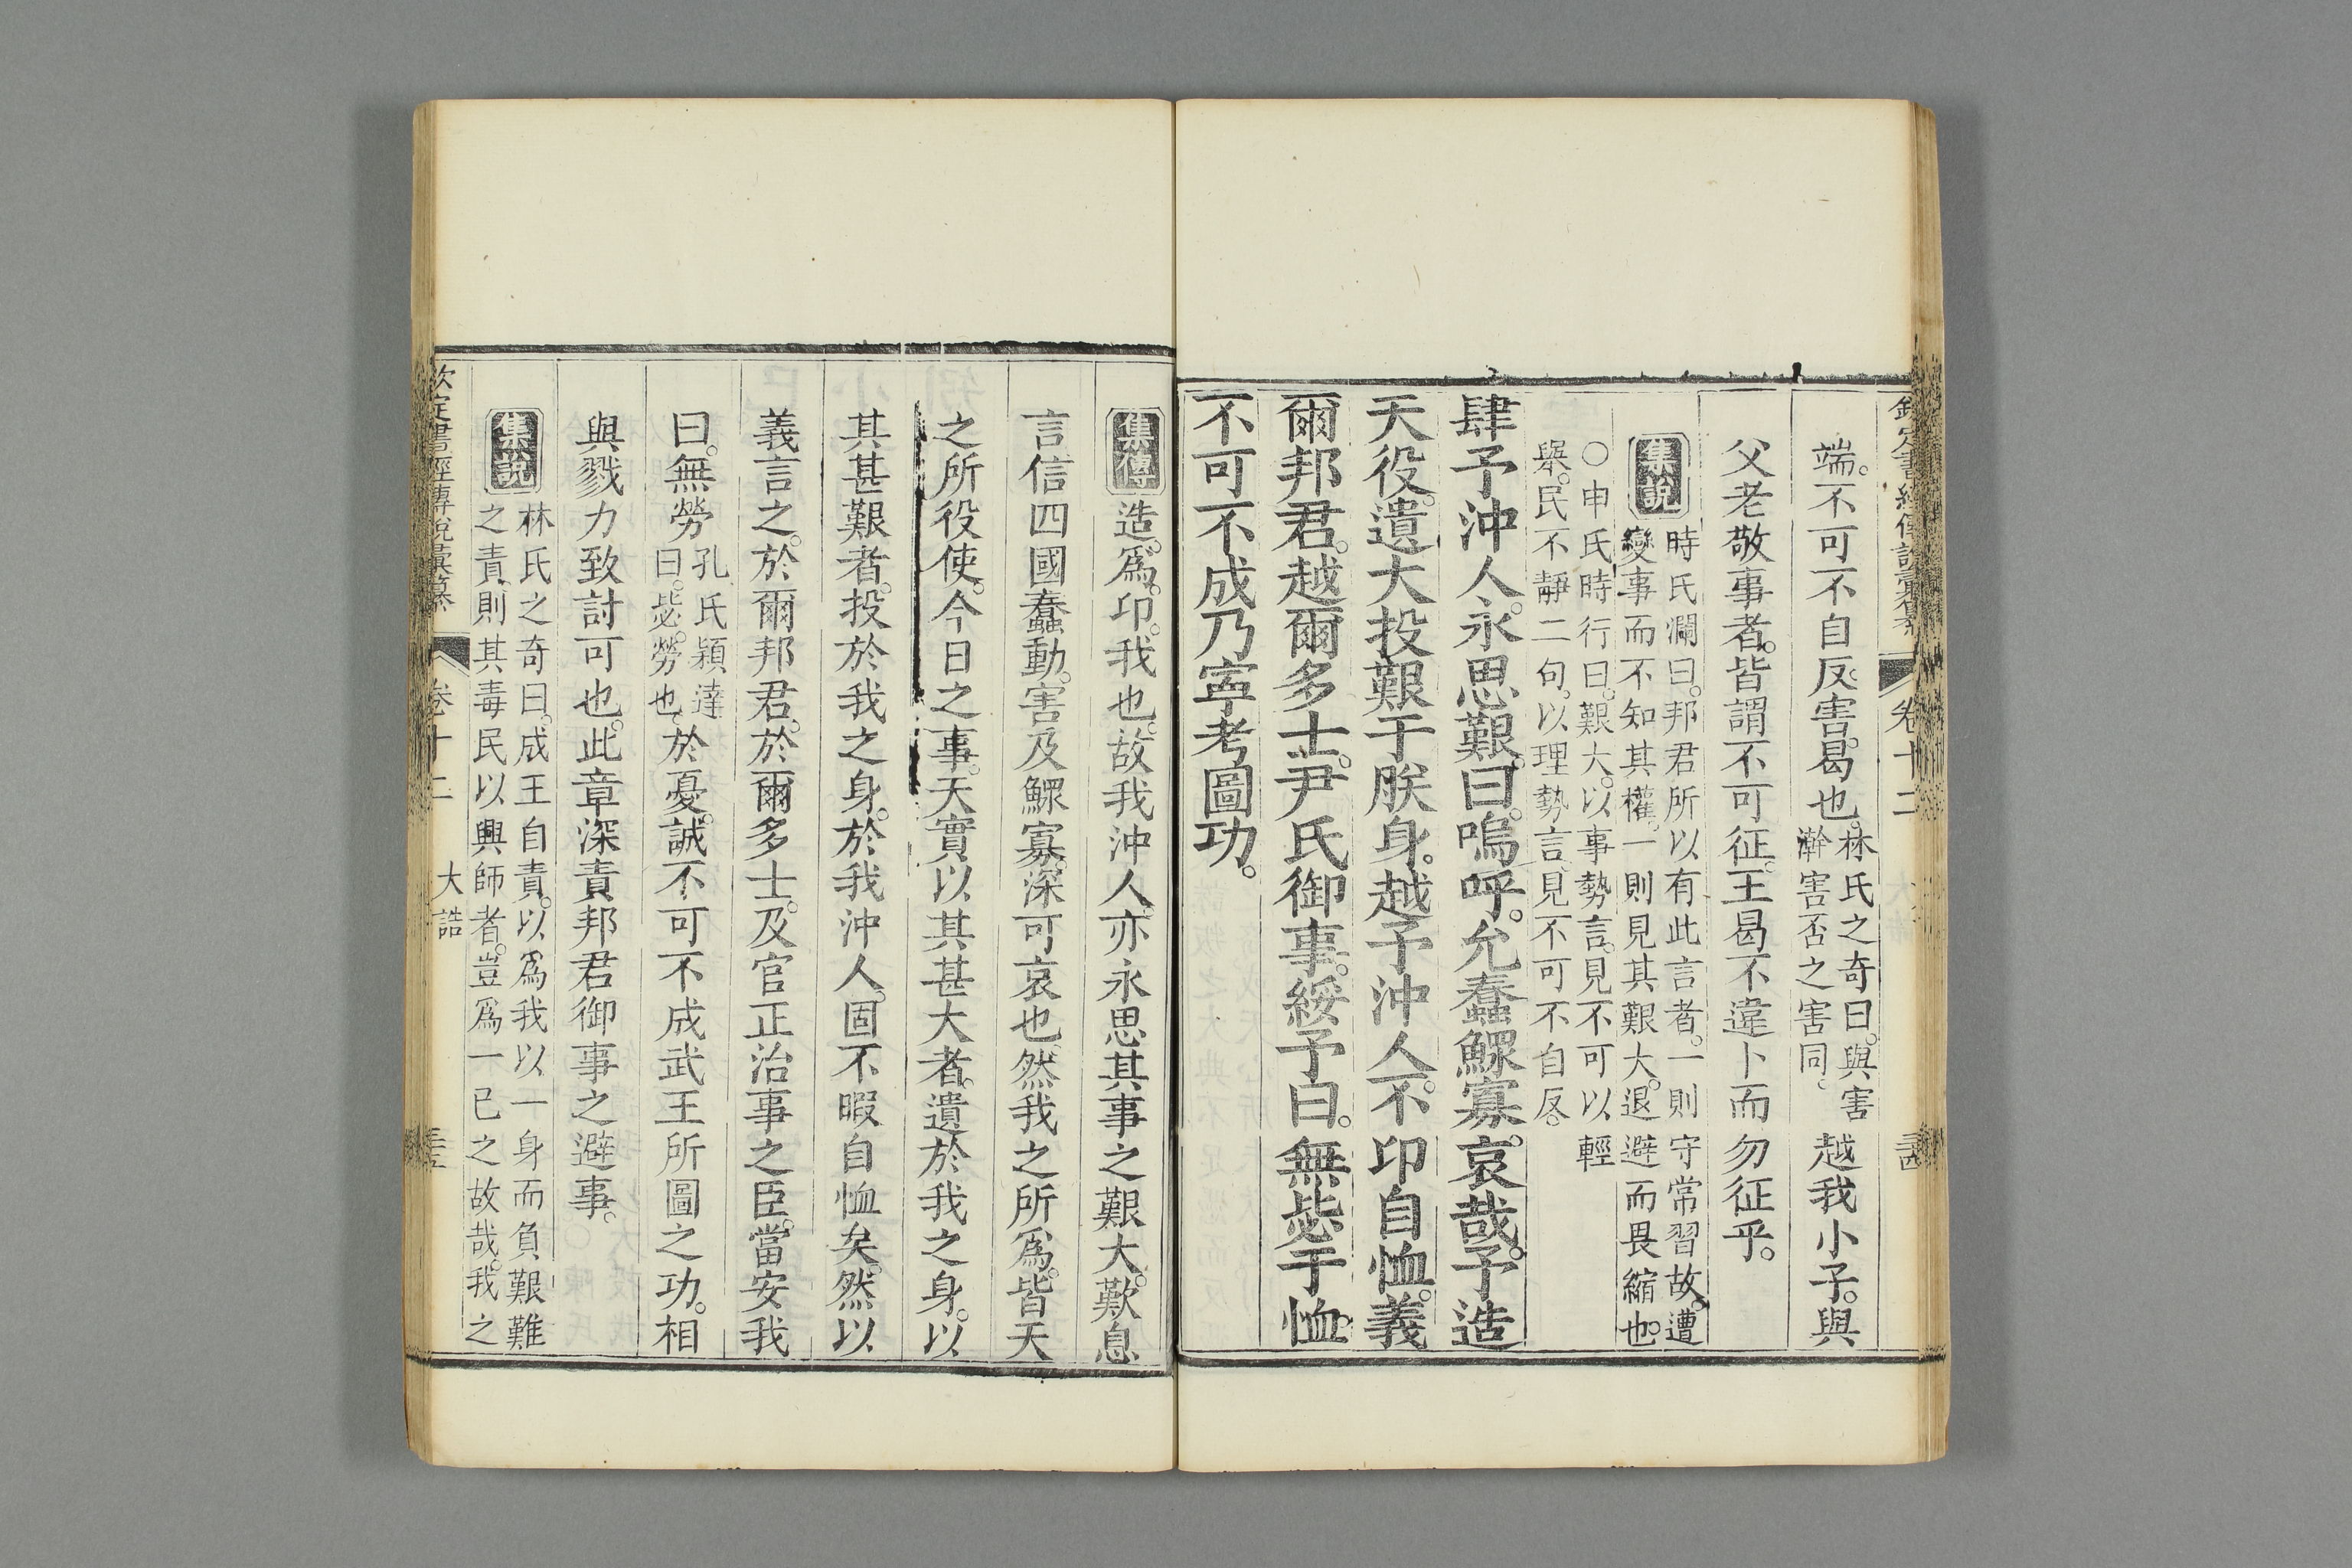 欽定書經傳說彙纂 卷十二 三十四
端。不可不自反。害。曷也。林氏之奇曰。與害澣害否之害同。越我小子。與
父老敬事者。皆謂不可征。王曷不違卜而勿征乎。
集說 時氏瀾曰。邦君所以有此言者。一則守常習故。遭
變事而不知其權。一則見其艱大。退避而畏縮也。
○申氏時行曰。艱大。以事勢言。見不可以輕
舉。民不靜二句。以理勢言。見不可不自反。
肆予沖人。永思艱。曰。嗚呼。允蠢鰥寡。哀哉。予造
天役。遺大投艱于朕身。越予沖人。不卬自恤。義
爾邦君。越爾多士。尹氏御事。綏予曰。無毖于恤。
不可不成乃寧考圖功。
集傳 造。爲。卬。我也。故我沖人。亦永思其事之艱大。歎息
言信四國蠢動。害及鰥寡。深可哀也。然我之所爲。皆天
之所役使。今日之事。天實以其甚大者。遺於我之身。以
其甚艱者。投於我之身。於我沖人。固不暇自恤矣。然以
義言之。於爾邦君。於爾多士。及官正治事之臣。當安我
曰。無勞孔氏穎達曰。毖。勞也。於憂。誠不可不成武王所圖之功。相
與戮力致討可也。此章深責邦君御事之避事。
集說 林氏之奇曰。成王自責。以爲我以一身而負艱難
之責。則其毒民以興師者。豈爲一已之故哉。我之
欽定書經傳說彙纂 卷十二 大誥 三十五